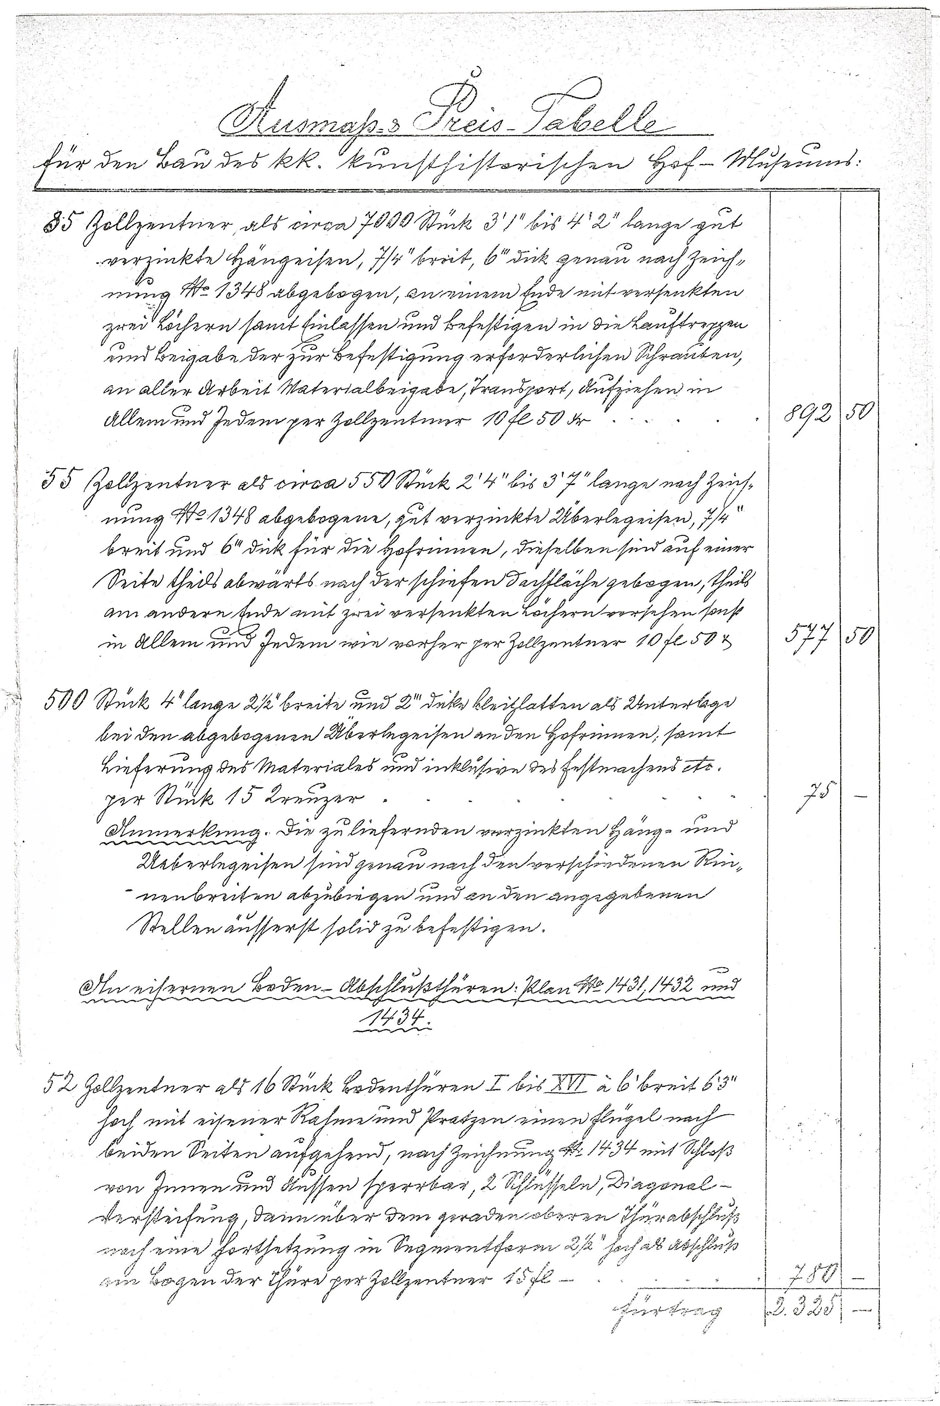 Ausmaß- & Preis-Tabelle
für den Bau des kk. kunsthistorischen Hof-Museums:
85 Zollzentner, als circa 7000 Stück 3'1" bis 4'2" lange gut
verzinkte Hängeisen, 7/4" breit, 6''' dick genau nach Zeich-
nung No 1348 abgebogen, an einem Ende mit versenkten
zwei Löchern samt Einlassen und Befestigen in die Lauftreppen
und Beigabe der zur Befestigung erforderlichen Schrauben,
an aller Arbeit Materialbeigabe, Transport, Aufziehen in
Allem und Jedem per Zollzentner 10 fl 50 Kr . . . . . 892 50
55 Zollzentner als circa 550 Stück 2'4" bis 3'7" lange nach Zeich-
nung No 1348 abgebogene, gut verzinkte Überlegeisen, 7/4"
breit und 6''' dick für die Hofrinnen, dieselben sind auf einer
Seite theils abwärts nach der schiefen Dachfläche gebogen, theils
am andern Ende mit zwei versenkten Löchern versehen sonst
in Allem und Jedem wie vorher per Zollzentner 10 fl 50 x 577 50
500 Stück 4" lange 2½" breite und 2''' dicke Bleiplatten als Unterlage
bei den abgebogenen Überlegeisen an den Hofrinnen, samt
Lieferung des Materiales und inklusive des Festmachens etc.
per Stück 15 Kreuzer . . . . . 75 –
Anmerkung. Die zu liefernden verzinkten Häng- und
Ueberlegeisen sind genau nach den verschiedenen Rin-
nenbreiten abzubiegen und an den angegebenen
Stellen äusserst solid zu befestigen.
An eisernen Boden-Abschlußthüren: Plan No 1431, 1432 und
1434.
52 Zollzentner als 16 Stück Bodenthüren I bis XVI à 6' breit 6'3"
hoch mit eisener Rahme und Pratzen einen Flügel nach
beiden Seiten aufgehend, nach Zeichnung No 1434 mit Schloß
von Innen und Aussen sperrbar, 2 Schlüsseln, Diagonal-
Versteifung, dann über dem geraden oberen Thürabschluß
noch eine Fortsetzung in Segmentform 2½" hoch als Abschluß
am Bogen der Thüre per Zollzentner 15 fl – . . . . 780 –
Fürtrag 2.325 –